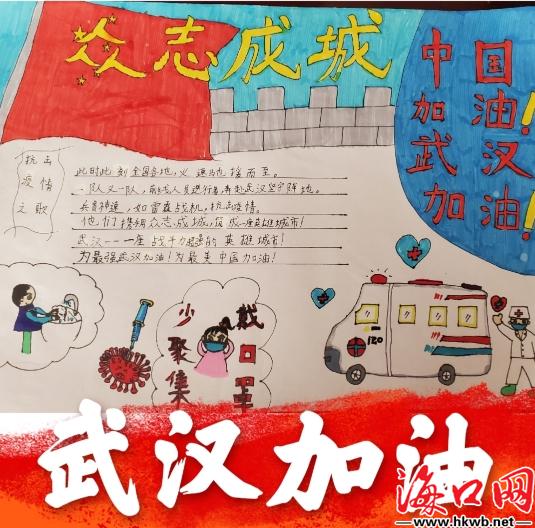 众志成城
中国
加油!
武汉
加油!
抗击
疫情
之歌
此时此刻全国各地,火速驰援而至。
一队又一队,前线人员逆行者,奔赴武汉坚守阵地。
兵贵神速,如雷霆战机,抗击疫情。
他们携手众志成城,筑成一座英雄城市!
武汉——一座战斗力超强的英雄城市!
为最强武汉加油!为最美中国加油!
少聚集
戴口罩
120
武汉加油
海口网
www.hkwb.net